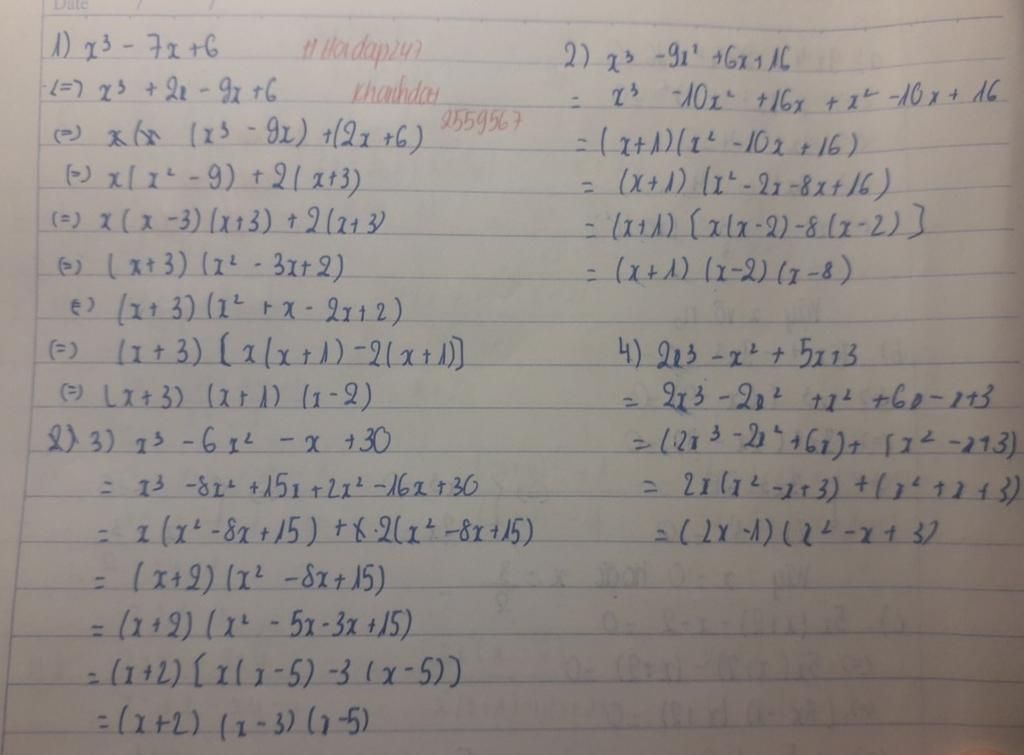 Date
1) x³ - 7x + 6
(=) x³ + 2x - 9x + 6
(=) (x³ - 9x) + (2x + 6)
(=) x(x² - 9) + 2(x+3)
(=) x(x - 3)(x+3) + 2(x+3)
(=) (x+3)(x² - 3x + 2)
(=) (x+3)(x² + x - 2x + 2)
(=) (x+3)[x(x+1) - 2(x+1)]
(=) (x+3)(x+1)(x-2)
#Hoidap247
Khanhdoy
2559567
3) x³ - 6x² - x + 30
= x³ - 8x² + 15x + 2x² - 16x + 30
= x(x² - 8x + 15) + 2(x² - 8x + 15)
= (x+2)(x² - 8x + 15)
= (x+2)(x² - 5x - 3x + 15)
= (x+2)[x(x-5) - 3(x-5)]
= (x+2)(x-3)(x-5)
2) x³ - 9x² + 6x + 16
= x³ - 10x² + 16x + x² - 10x + 16
= (x+1)(x² - 10x + 16)
= (x+1)(x² - 2x - 8x + 16)
= (x+1)[x(x-2) - 8(x-2)]
= (x+1)(x-2)(x-8)
4) 2x³ - x² + 5x + 3
= 2x³ - 2x² + x² + 6x - x + 3
= (2x³ - 2x² + 6x) + (x² - x + 3)
= 2x(x² - x + 3) + (x² + x + 3)
= (2x - 1)(x² - x + 3)